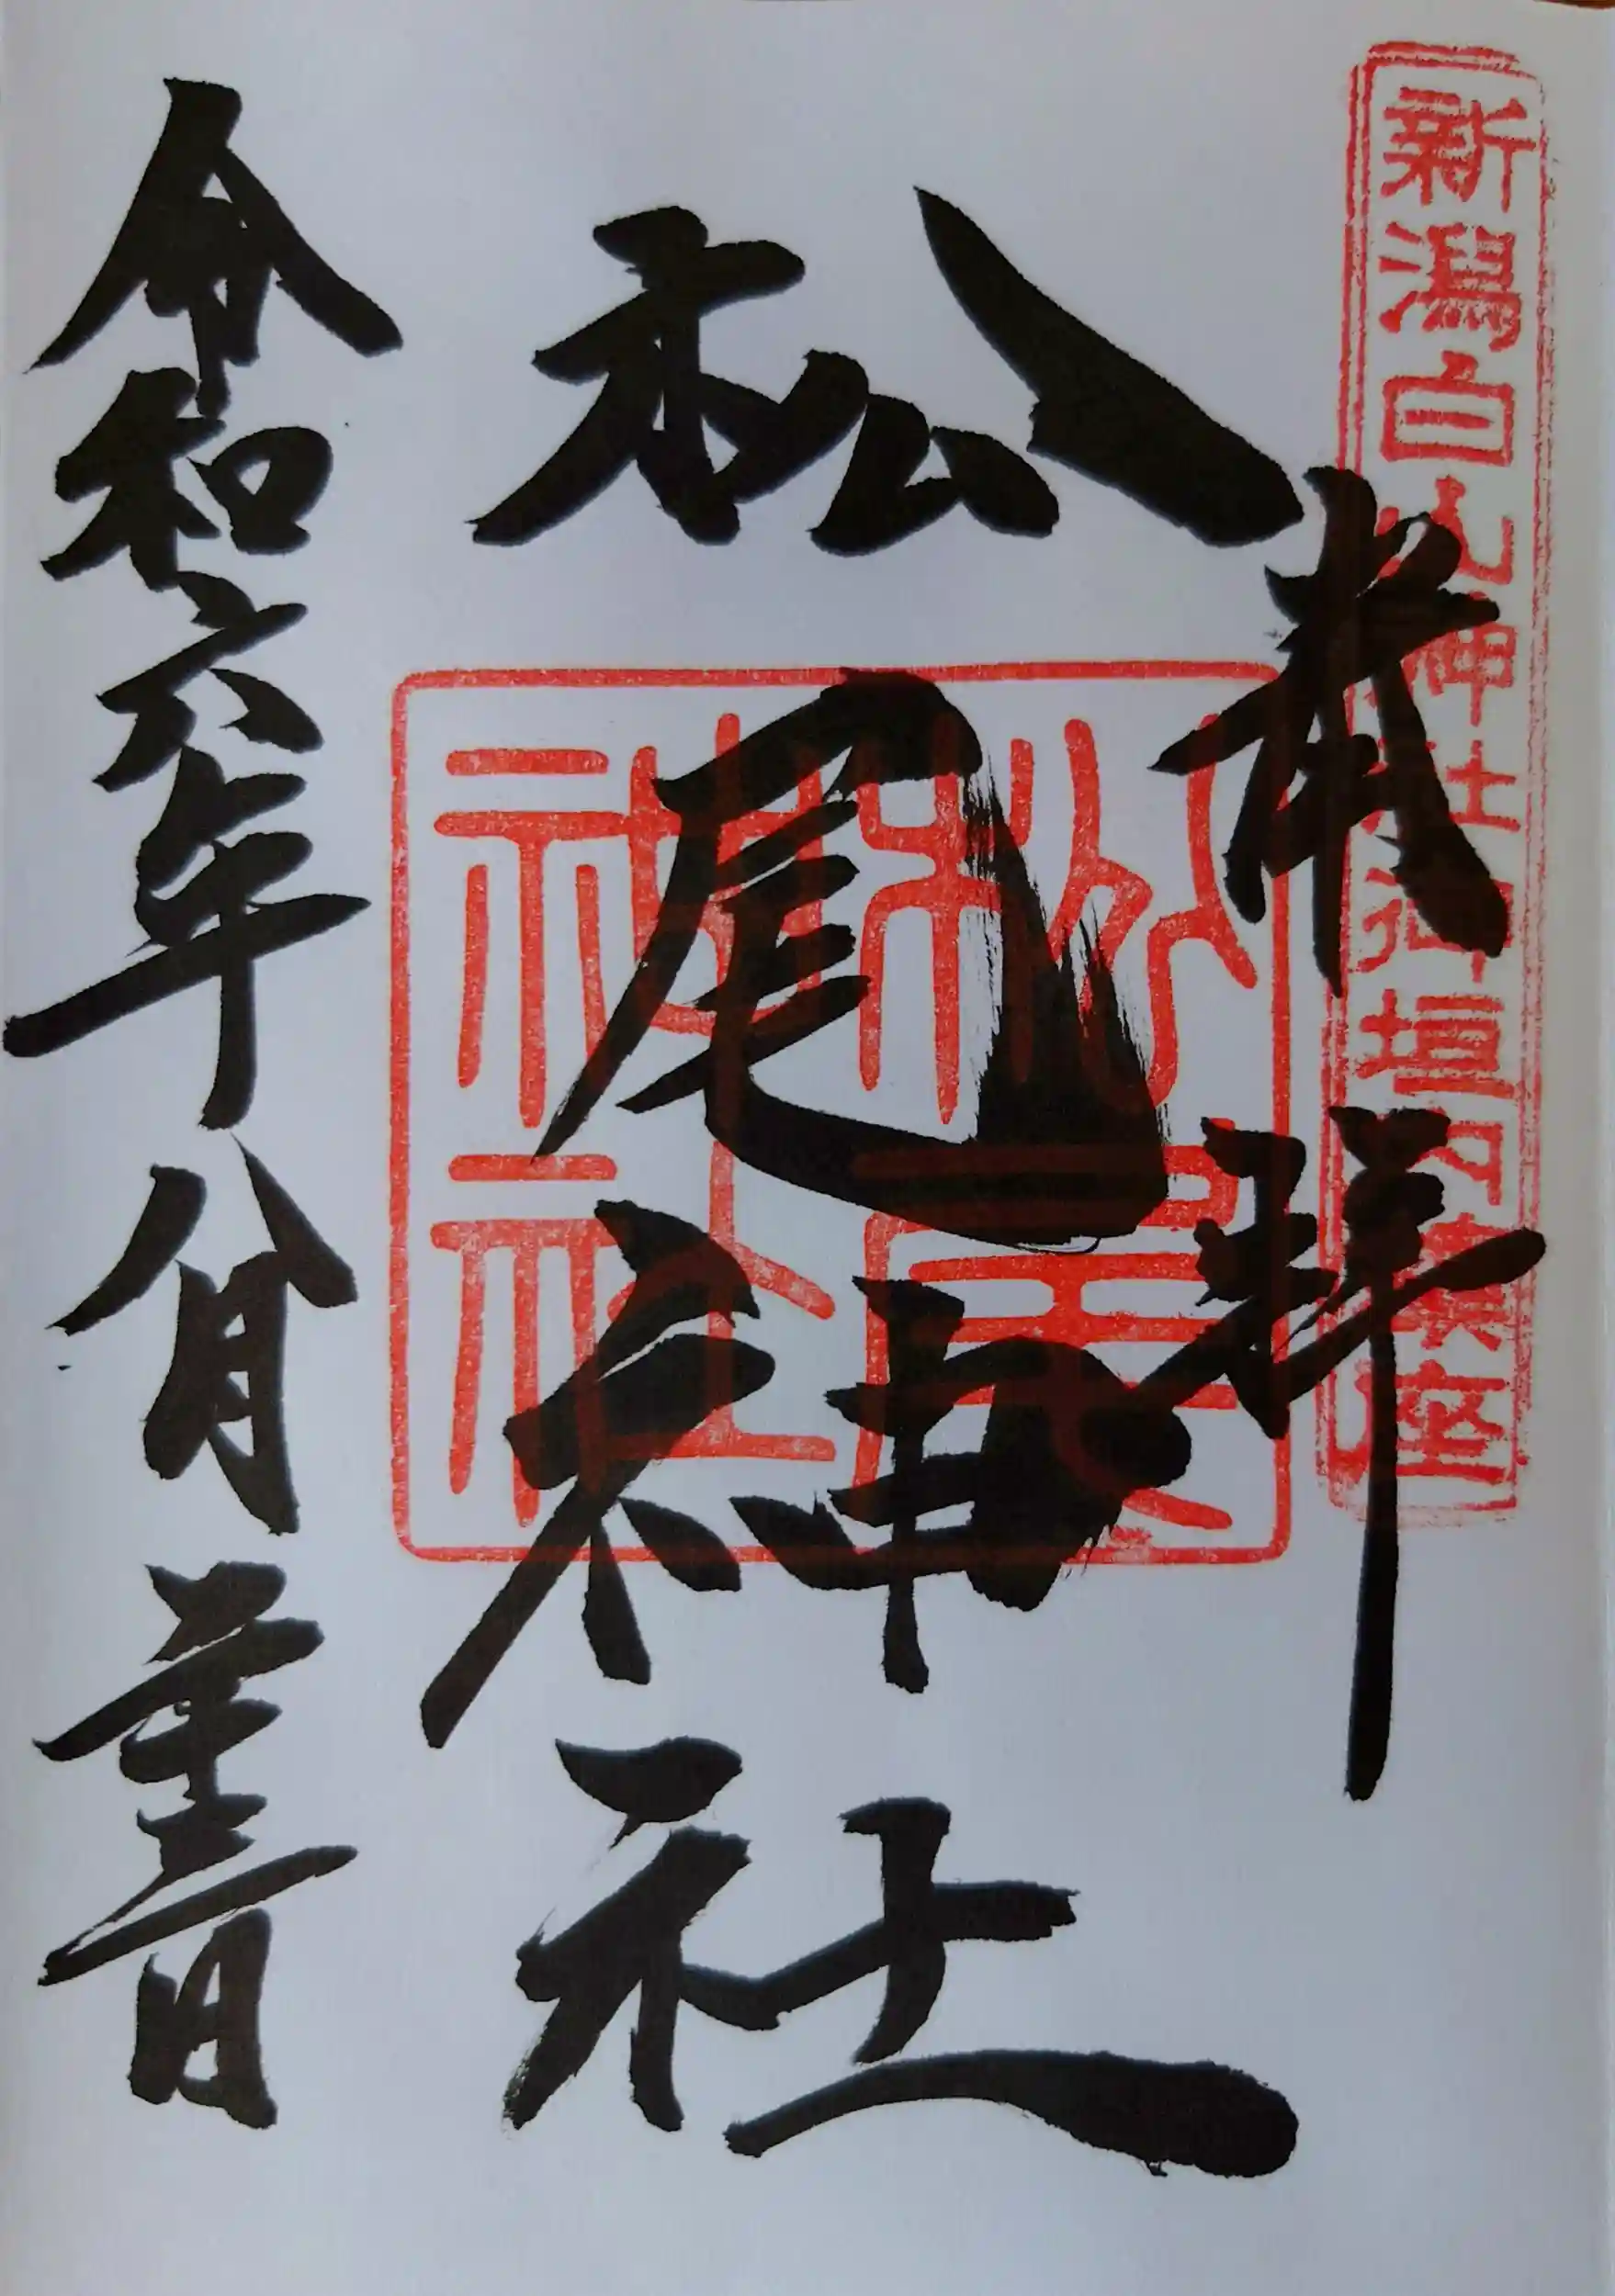 新潟白山神社御垣内座
奉拝
松尾神社
松尾
神社
令和六年八月二十三日